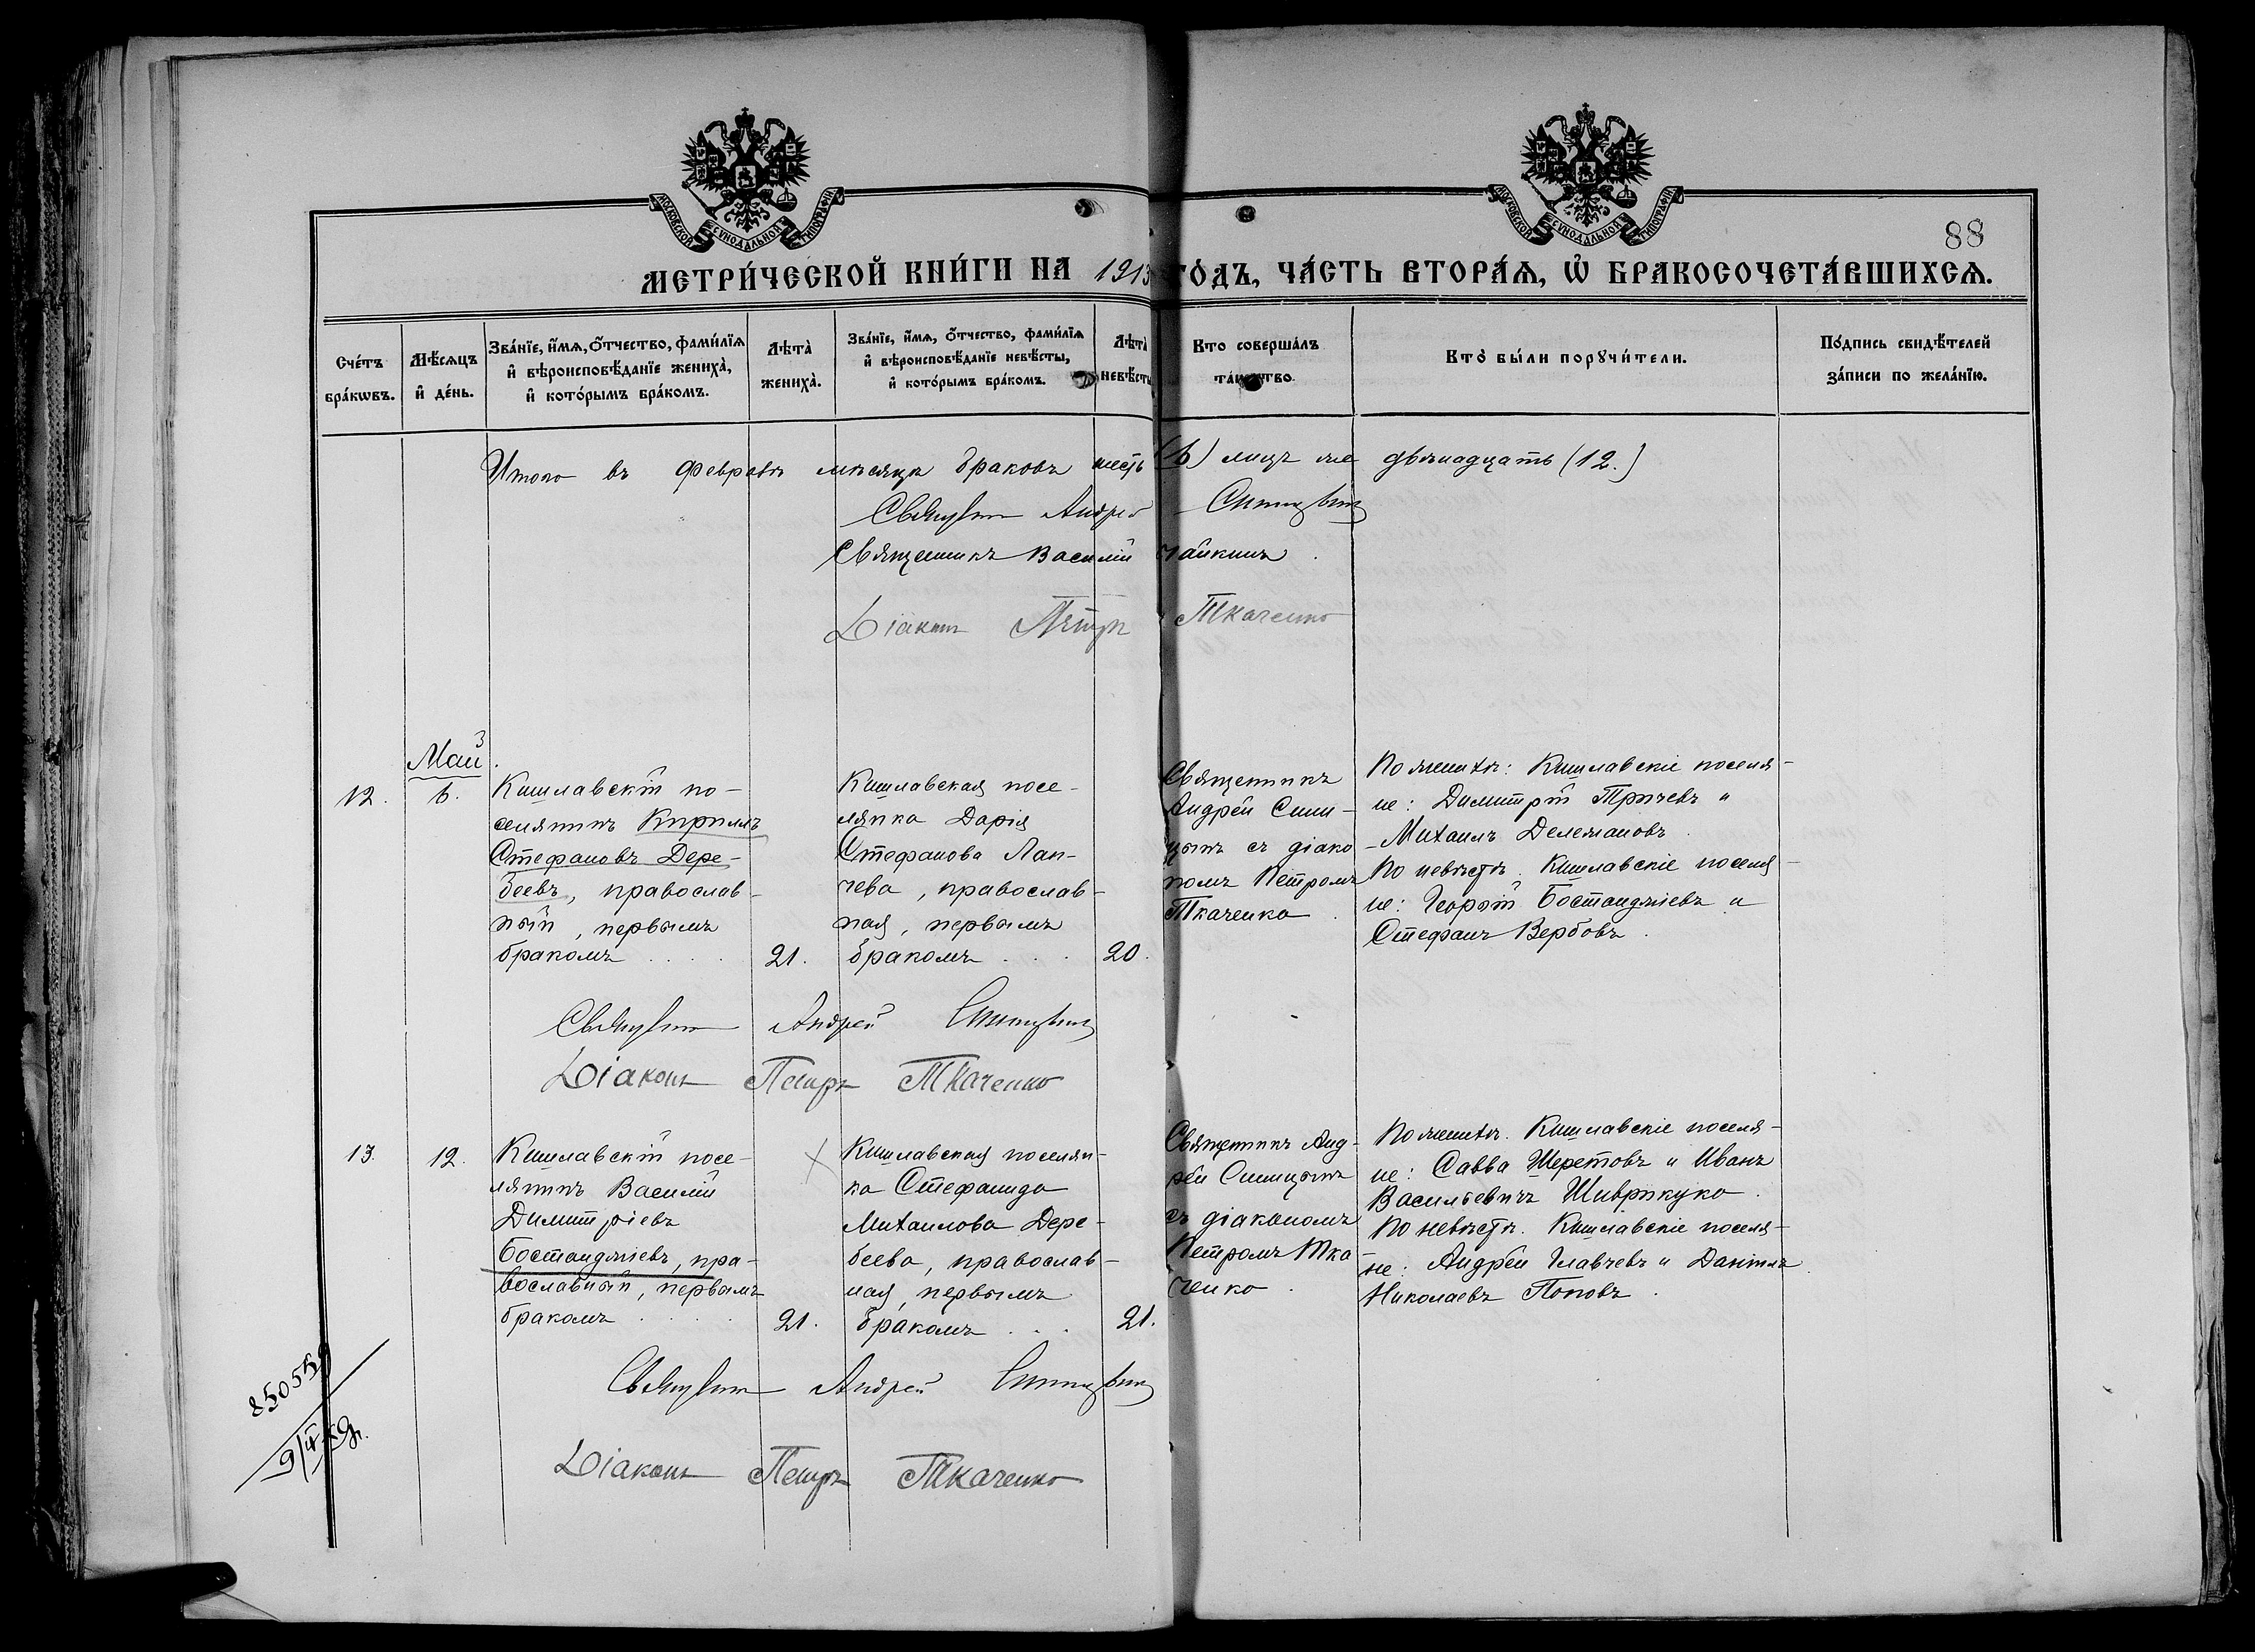 МОСКОВСКОЙ СѴНОДАЛЬНОЙ ТИПОГРАФІИ
МОСКОВСКОЙ СѴНОДАЛЬНОЙ ТИПОГРАФІИ
88
МЕТРИ́ЧЕСКОЙ КНИ́ГИ НА 1913 ГО́ДЪ, ЧА́СТЬ ВТОРА́Ѧ, Ѽ БРАКОСОЧЕТА́ВШИХСѦ.
Сче́тъ
бра́кѡвъ.
Мѣ́сѧцъ
и҆ де́нь.
Зва́нїе, и҆́мѧ, ѻ҆́тчество, фами́лїѧ
и҆ вѣроисповѣ́данїе жениха̀,
и҆ кото́рымъ бра́комъ.
Лѣта̀
жениха̀.
Зва́нїе, и҆́мѧ, ѻ҆́тчество, фами́лїѧ
и҆ вѣроисповѣ́данїе невѣ́сты,
и҆ кото́рымъ бра́комъ.
Лѣта̀
невѣ́сты
Кто соверша́лъ
та́инство.
Кто̀ бы́ли порꙋчи́тели.
По́дпись свидѣ́телей
за́писи по жела́нїю.
Итого въ Февралѣ мѣсяцѣ браковъ шесть (6) лицъ же двѣнадцать (12.)
Андрей Синицынъ
Священникъ Василій Чайкинъ
Діаконъ Петръ Ткаченко
Май
12.
6.
Кишлавскій по-
селянинъ Кириллъ
Стефановъ Дере-
беевъ, православ-
ный, первымъ
бракомъ . . . .
21.
Кишлавская посе-
лянка Дарія
Стефанова Лап-
чева, православ-
ная, первымъ
бракомъ . . .
20.
Священникъ
Андрей Сини-
цынъ съ діако-
номъ Петромъ
Ткаченко.
По женихѣ: Кишлавскіе поселя-
не: Димитрій Тричевъ и
Михаилъ Делемановъ.
По невѣстѣ. Кишлавскіе поселя-
не: Георгій Бостанджіевъ и
Стефанъ Вербовъ.
Андрей Синицынъ
Діаконъ Петръ Ткаченко
13.
12.
Кишлавскій посе-
лянинъ Василій
Димитріевъ
Бостанджіевъ, пра-
вославный, первымъ
бракомъ . . . .
21.
Кишлавская поселян-
ка Стефанида
Михаилова Дере-
беева, православ-
ная, первымъ
бракомъ . . .
21.
Священникъ Анд-
рей Синицынъ
съ діакономъ
Петромъ Тка-
ченко.
По женихѣ. Кишлавскіе поселя-
не: Савва Шеретовъ и Иванъ
Васильевичъ Шиврикуко.
По невѣстѣ. Кишлавскіе поселя-
не: Андрей Главчевъ и Даніилъ
Николаевъ Поповъ.
Андрей Синицынъ
Діаконъ Петръ Ткаченко